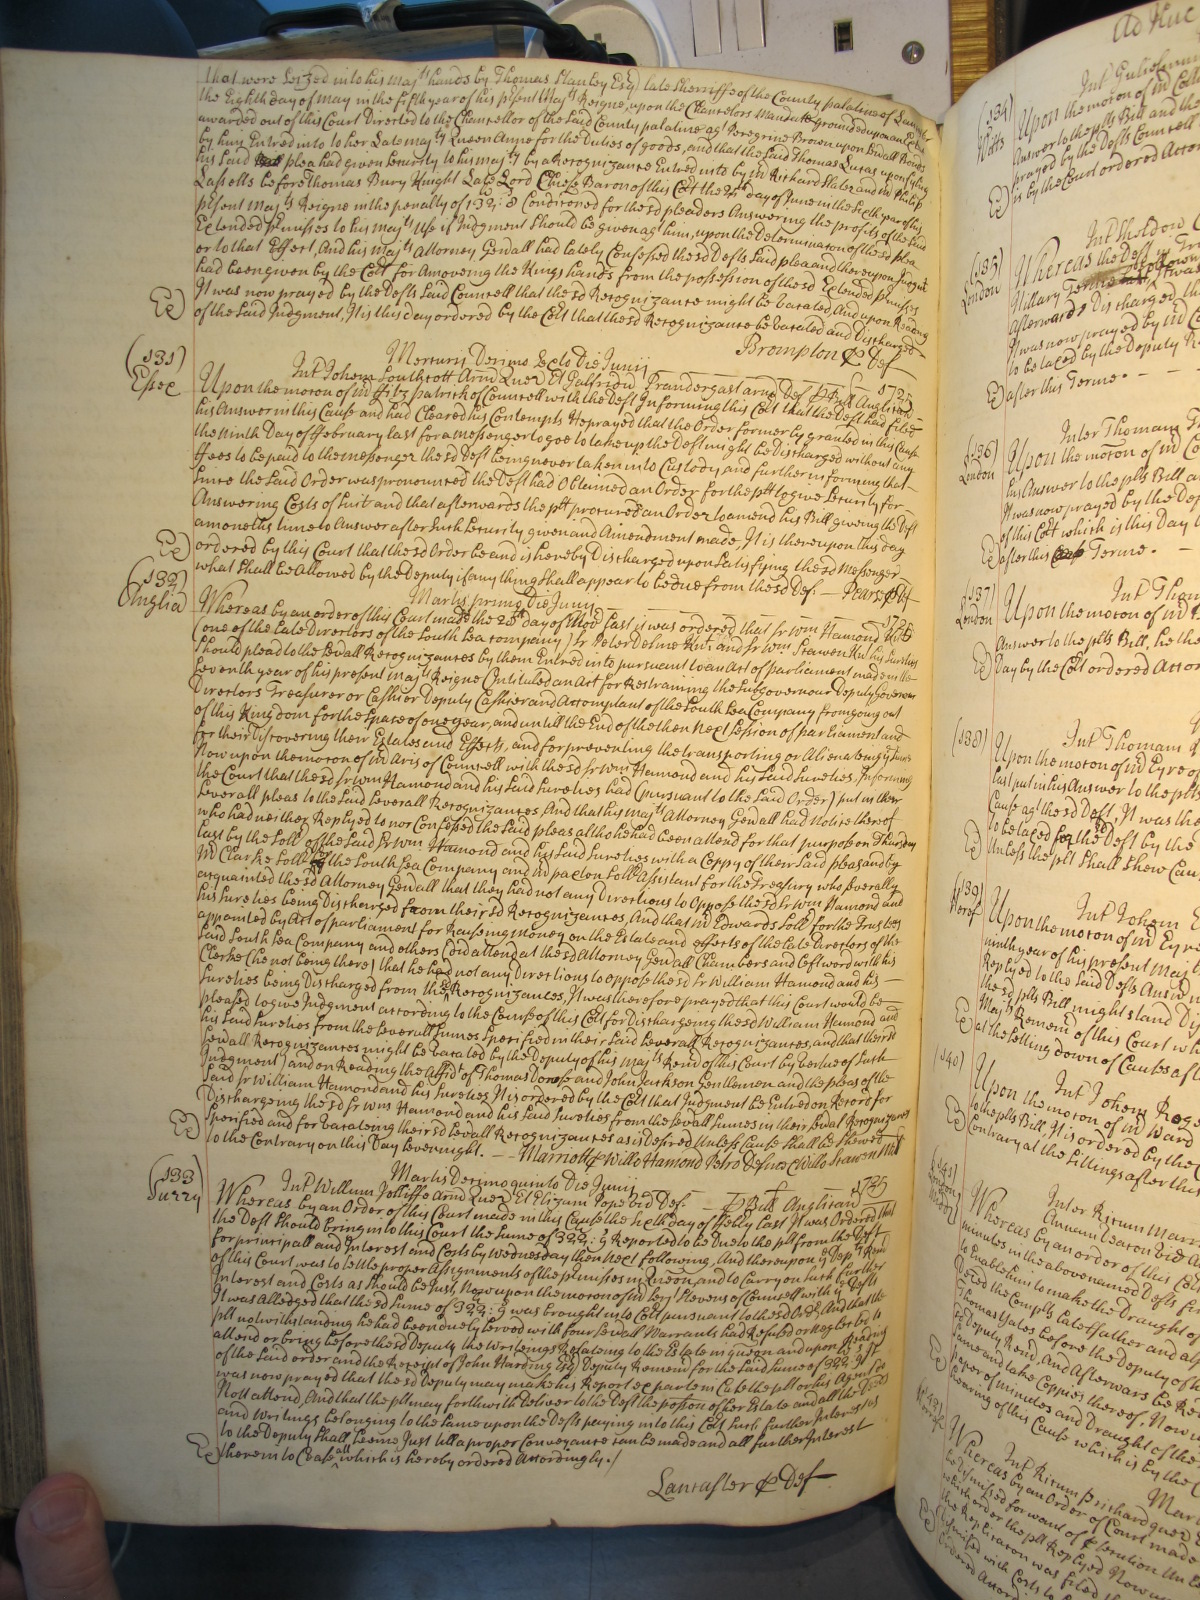 that were Seized into his Maj.ts hands by Thomas Stanley Esq.r late Sherriffe of the County palatine of Lancaster
the Eighth day of May in the fifth year of his p̃sent Maj.ts Reigne, upon the Chancellors Mandate grounded upon an Extent
awarded out of this Court Directed to the Chancellor of the Said County palatine ag.t Peregrine Brown upon Sevall Bonds
by him Entred into to her Late Ma.ty Queen Anne for the Duties of goods, and that the Said Thomas Lucas upon fyling
his Said plea had given Security to his Maj.ty by a Recognizance Entred into by M.r Richard Slater and M.r Philip
Lassells before Thomas Bury Knight Late Lord Chiefe Baron of this Co.rt the day of June in the Sixth year of his
p̃sent Maj.ts Reigne in the penalty of Conditioned for the s.d pleaders Answering the profits of the Said
Extended p̃misses to his Maj.ts Use if Judgment Should be given ag.t him, upon the Determination of the s.d plea
or to that Effect, And his Maj.ts Attorney Gen̄all had lately Confessed the s.d Defts Said plea and thereupon Judgm.t
had been given by the Co.rt for Amoveing the Kings hands from the possession of the s.d Extended p̃misses
It was now prayed by the Defts Said Councell that the s.d Recognizance might be Vacated, And upon Reading
of the Said Judgment, It is this day ordered by the Co.rt that the s.d Recognizance be Vacated and Discharged
Ex)
Brompton p Def
(131)
Essex
Mercurij Decimo Sexto Die Junij
Int Johem Southcott Arm̃ Quer Et Galfrid Prandergast arm̃ Def p Bill Anglican 1725
Upon the motion of M.r Fitzpatrick of Councell with the Deft Informing this Co.rt that the Deft had filed
his Answer in this Cause and had Cleared his Contempts He prayed that the Order formerly granted in this Cause
the Ninth Day of February last for a Messenger to goe to take up the Deft might be Discharged without any
ffees to be paid to the Messenger the s.d Deft being never taken into Custody, and further informing that
Since the Said Order was pronounced the Deft had Obtained an Order for the plt to give Security for
Answering Costs of Suit and that afterwards the plt procured an Order to amend his Bill giving the Deft
a moneths time to Answer after Such Security given and Amendment made, It is thereupon this day
ordered by this Court that the s.d Order be and is hereby Discharged upon Satisfying the s.d Messenger
what Shall be Allowed by the Deputy if any thing Shall appear to be due from the s.d Def: — Pearse p Def
Ex)
(132)
Anglia
Martis primo Die Junij 1725
Whereas by an order of this Court made the day of May last it was ordered that S.r W.m Hamond
(one of the Late Directors of the South Sea Company) S.r Peter Delme Kn.t and S.r W.m Scawen Kn.t his Sureties
Should plead to the Sev̄all Recognizances by them Entred into pursuant to an Act of parliament made in the
Seventh year of his present Maj.ts Reigne Intituled an Act for Restraining the Subgovernour Deputy Governour
Directors Treasurer or Cashier Deputy Cashier and Accomptant of the South Sea Company from going out
of this Kingdom for the Space of one year, and untill the End of the then Next Session of parliament and
for their Discovering their Estates and Effects, and for preventing the transporting or Alienating the Same
Now upon the motion of M.r Aris of Councell with the s.d S.r W.m Hamond and his Said Sureties, Informing
the Court that the s.d S.r W.m Hamond and his Said Sureties had (pursuant to the Said Order) put in their
Severall pleas to the Said Severall Recognizances, And that his Maj.ts Attorney Gen̄all had Notice thereof
who had neither Replyed to nor Confessed the Said pleas altho he had been attend for that purpose on Thursday
last by the Soll.r of the Said S.r W.m Hamond and his Said Sureties with a Coppy of their Said pleas and by
M.r Clarke Soll.r of the South Sea Company and M.r Paxton Soll.r Assistant for the Treasury who Severally
acquainted the s.d Attorney Gen̄all that they had not any Directions to Oppose the s.d S.r W.m Hamond and
his Sureties being Discharged from their s.d Recognizances, And that M.r Edwards Soll.r for the Trustees
appointed by Act of parliament for Raiseing Money on the Estate and effects of the late Directors of the
Said South Sea Company and others (did attend at the s.d Attorney Gen̄all Chambers and left word with his
Clerke (he not being there) that he had not any Directions to oppose the s.d S.r William Hamond and his
Sureties being Discharged from their s.d Recognizances, It was therefore prayed that this Court would be
pleased to give Judgment according to the Course of this Co.rt for Discharging the s.d William Hamond and
his Said Sureties from the Severall Summes Specified in their Said Severall Recognizances, and that their s.d
Sev̄all Recognizances might be Vacated by the Deputy of his Maj.ts Rem̃ of this Court by Vertue of Such
Judgment, and on Reading the Affid.t of Thomas and John Jackson Gentlemen and the pleas of the
Said S.r William Hamond and his Sureties, It is ordered by the Co.rt that Judgment be Entred on Record for
Discharging the s.d S.r W.m Hamond and his Said Sureties from the Sev̄all Summes in their Sev̄al Recognizances
Specified and for Vacating their s.d Sev̄all Recognizances as is desired Unless Cause Shall be Shewed
to the Contrary on this Day Sevennight. — Marriott p Willo Hamond Petro Delme & Willo Scawen Mil
Ex)
(133)
Surry
Martis Decimo quinto Die Junij
Int William Jolliffe Arm̃ Quer Et Elizam Pope vid Def. — p Bill Anglican 1725
Whereas by an Order of this Court made in this Cause the Sixth day of Feb.ry last It was Ordered that
the Deft Should bring into this Court the Sume of Reported to be Due to the plt from the Deft
for principall and Interest and Costs by Wednesday then Next following, And thereupon y.e Dep.ty Rem̃
of this Court was to Settle proper Assignments of the p̃misses in Queon, and to Carry on Such further
Interest and Costs as Should be Just, Now upon the motion of M.r Serj.t Stevens of Councell with y.e Defts
It was Alledged that the s.d Sume of was brought into Co.rt pursuant to the s.d Ord.r And that the
plt notwithstanding he had been duely Served with four Sevall Warrants had Refused or Neglected to
attend or bring before the s.d Deputy the Writeings Relateing to the Estate in queon and upon Reading
of the Said order and the Receipt of John Harding Esq.r Deputy Rem̃ for the Said Sume of It
was now prayed that the s.d Deputy may make his Report exparte in Case the plt or his Agent do
Not attend, And that the plt may forthwith deliver to the Deft the poss̃ion of her Estate and all the Deeds
and Writings belonging to the Same upon the Defts paying into this Co.rt Such further Interest as
to the Deputy Shall Seeme Just till a proper Conveyance can be made and all further Interest
therein to Cease all which is hereby ordered Accordingly./
Ex)
Lancaster p Def
Ad Huc
(134)
Wilts
Int Gulielmum
Upon the motion of M.r
Answer to the plts Bill and the
prayed by the Defts Councell
is by the Court ordered Accor
Ex)
(135)
London
Int Weldon
Whereas the Deft
Hillary Terme
afterwards Discharged the
It was now prayed by M.r
to be taxed by the Deputy Re
after this Terme. —
Ex)
(136)
London
Inter Thomam
Upon the motion of M.r
his Answer to the plts Bill a
It was now prayed by the Def
of this Co.rt which is this Day
after this Terme. —
Ex)
(137)
London
Int Thom
Upon the motion of M.r
Answer to the plts Bill, he th
Day by the Co.rt ordered Accor
Ex)
(138)
Int Thomam
Upon the motion of M.r Eyre of
last put in his Answer to the plts
Cause ag.t the s.d Deft, It was the
to be taxed for the Deft by the
Unless the plt Shall Shew Cau
Ex)
(139)
Heref
Int Johem
Upon the motion of M.r Eyre
ninth year of his present Maj
Replyed to the Said Defts Answ
the s.d plts Bill might Stand Di
Maj.ts Rem̃ent of this Court wh
at the Setting down of Causes af
Ex)
(140)
Int Johem Roge
Upon the motion of M.r Ward
to the plts Bill, It is ordered by the C
Contrary at the Sittings after this
Ex)
(141)
London
Inter Ricum Marri
Annam Eaton vid A
Whereas by an order of this Co
minutes in the above named Defts
to Enable him to make the Draught of
Dated the Complts Late ffather and al
Thomas Yates before the Deputy of
s.d Deputy Rem̃, And Afterwards be Re
Same and take Coppies thereof, Now
paper of minutes and Draught of the
hearing of this Cause which is by the C
Ex)
(142)
Mart
Int Ricum Prichard quer E
Whereas by an Order of Court made
be Dismissed for want of p̃secution Un
which order the plt Replyed Now
the Replication was filed th
dismissed with Costs to
ordered Accor
Ex)